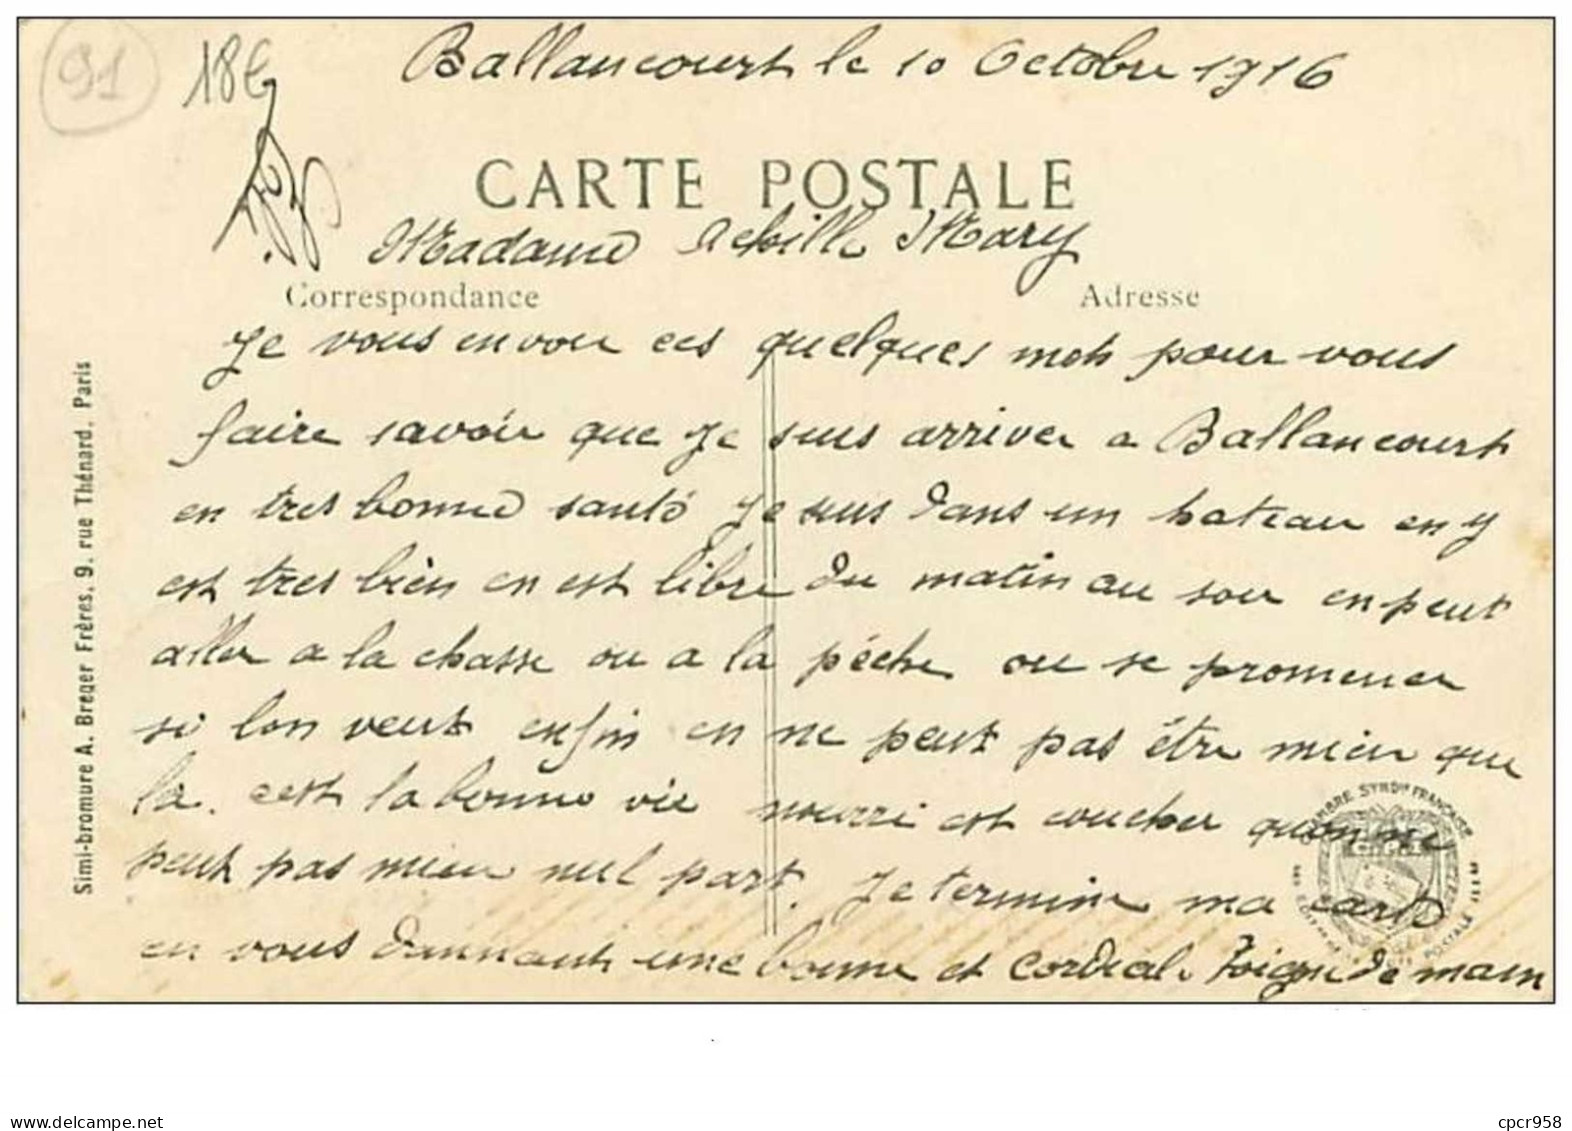 91
18€
Ballancourt le 10 Octobre 1916
CARTE POSTALE
Madame Achille Mary
Correspondance
Adresse
Je vous envoie ces quelques mots pour vous
faire savoir que je suis arriver a Ballancourt
en tres bonne santé je suis dans un bateau en y
est tres bien en est libre du matin au soir en peut
aller a la chasse ou a la pêche ou se promener
si lon veut enfin en ne peut pas être mieu que
la. cest la bonne vie nourri est coucher quon ne
peut pas mieu nul part. Je termine ma carte
en vous dannant une bonne et cordiale Poigne de main
Simi-bromure A. Breger Frères, 9, rue Thénard, Paris
CHAMBRE SYNDle FRANÇAISE
POSTALE
delcampe.net
cpcr958